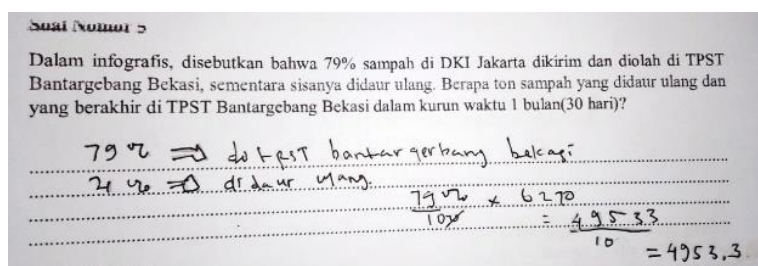 Soal Nomor 5
Dalam infografis, disebutkan bahwa 79% sampah di DKI Jakarta dikirim dan diolah di TPST
Bantargebang Bekasi, sementara sisanya didaur ulang. Berapa ton sampah yang didaur ulang dan
yang berakhir di TPST Bantargebang Bekasi dalam kurun waktu 1 bulan(30 hari)?
79 % ⇒ di TPST bantar gerbang bekasi
21 % ⇒ di daur ulang
79% × 6270
100 = 49533
10 = 4953,3